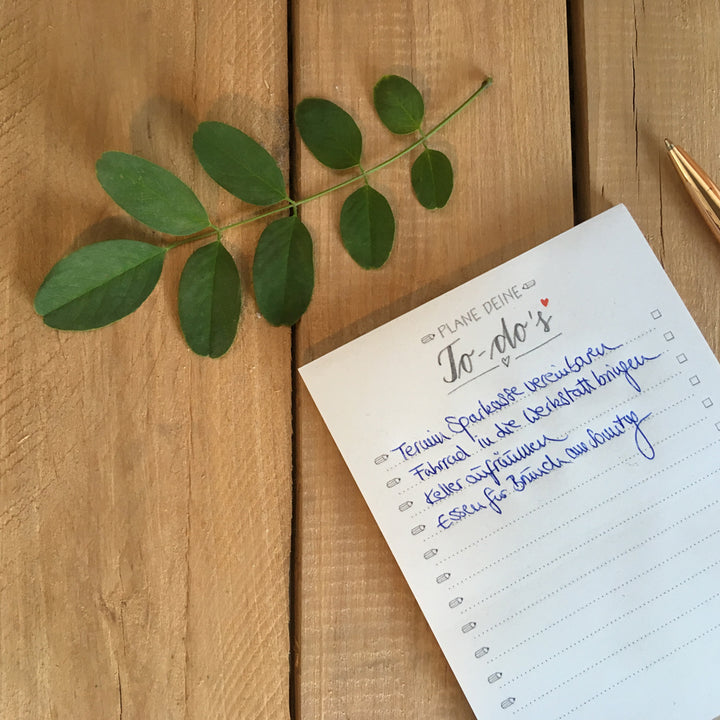 PLANE DEINE
To-do's
Termin Sparkasse vereinbaren
Fahrrad in die Werkstatt bringen
Keller aufräumen
Essen für Brunch am Sonntag